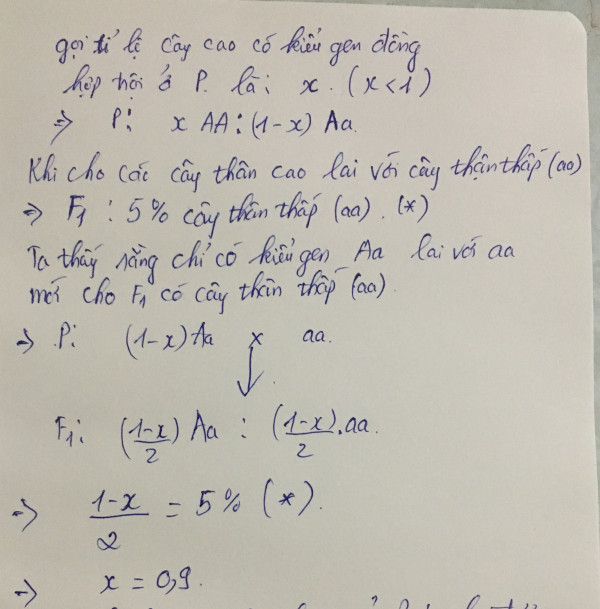 gọi tỉ lệ cây cao có kiểu gen đồng
hợp trội ở P. là: x. (x<1)
=> P: x AA : (1-x) Aa.
Khi cho các cây thân cao lai với cây thân thấp (aa)
=> F1 : 5% cây thân thấp (aa). (*)
Ta thấy rằng chỉ có kiểu gen Aa lai với aa
mới cho F1 có cây thân thấp (aa).
=> P: (1-x) Aa x aa.
F1: (1-x)/2 Aa : (1-x)/2 .aa.
=> (1-x)/2 = 5% (*).
=> x = 0,9.